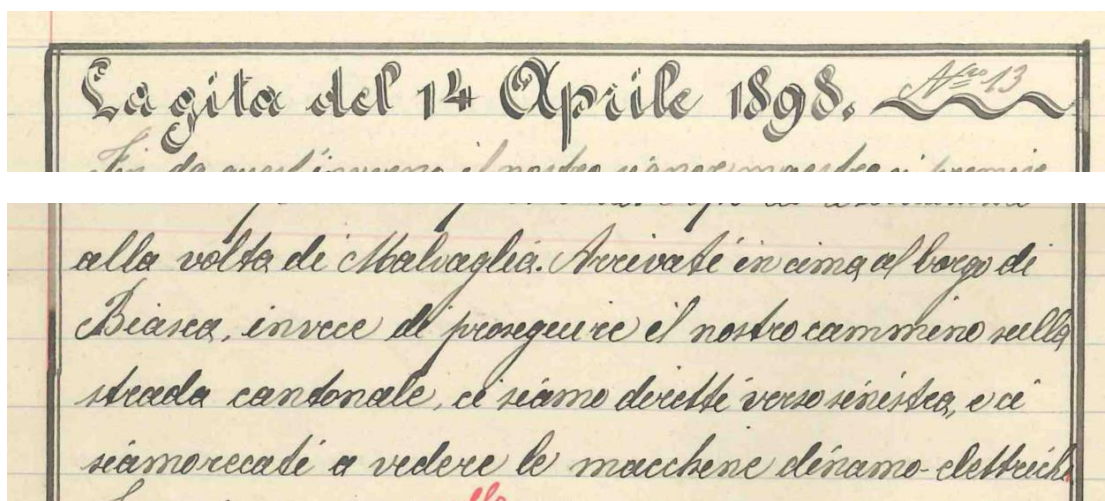 La gita del 14 Aprile 1898.
Nro 13
Fin da quest'inverno il nostro signor maestro ci promise
alla volta di Malvaglia. Arrivati in cima al borgo di
Biasca, invece di proseguire il nostro cammino sulla
strada cantonale, ci siamo diretti verso sinistra, e ci
siamo recati a vedere le macchine dinamo-elettriche